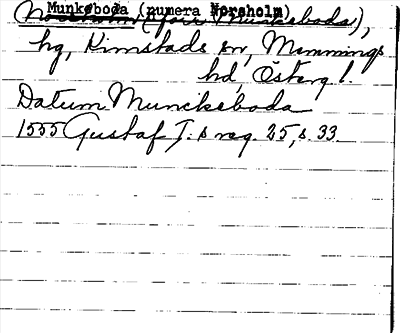 Munkeboda (numera Norsholm)
Norsholm (förr Munckeboda),
hg, Kimstads sn, Memmings
hd, Österg l.
Datum Munckeboda
1555 Gustaf I:s reg. 25, s. 33.